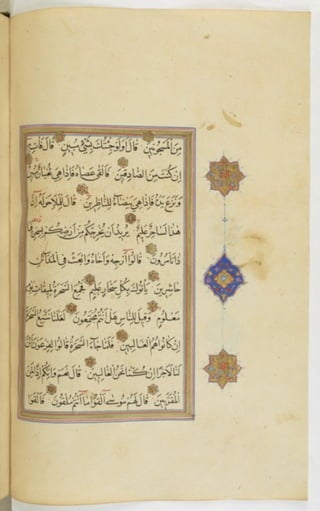 مِنَ الْمَسْجُونِينَ قَالَ أَوَلَوْ جِئْتُكَ بِشَيْءٍ مُبِينٍ قَالَ فَأْتِ بِهِ
إِنْ كُنْتَ مِنَ الصَّادِقِينَ فَأَلْقَى عَصَاهُ فَإِذَا هِيَ ثُعْبَانٌ مُبِينٌ
وَنَزَعَ يَدَهُ فَإِذَا هِيَ بَيْضَاءُ لِلنَّاظِرِينَ قَالَ لِلْمَلَإِ حَوْلَهُ إِنَّ
هَذَا لَسَاحِرٌ عَلِيمٌ يُرِيدُ أَنْ يُخْرِجَكُمْ مِنْ أَرْضِكُمْ بِسِحْرِهِ فَمَا
ذَا تَأْمُرُونَ قَالُوا أَرْجِهْ وَأَخَاهُ وَابْعَثْ فِي الْمَدَائِنِ
حَاشِرِينَ يَأْتُوكَ بِكُلِّ سَحَّارٍ عَلِيمٍ فَجُمِعَ السَّحَرَةُ لِمِيقَاتِ يَوْمٍ
مَعْلُومٍ وَقِيلَ لِلنَّاسِ هَلْ أَنْتُمْ مُجْتَمِعُونَ لَعَلَّنَا نَتَّبِعُ السَّحَرَةَ
إِنْ كَانُوا هُمُ الْغَالِبِينَ فَلَمَّا جَاءَ السَّحَرَةُ قَالُوا لِفِرْعَوْنَ أَئِنَّ
لَنَا لَأَجْرًا إِنْ كُنَّا نَحْنُ الْغَالِبِينَ قَالَ نَعَمْ وَإِنَّكُمْ إِذًا لَمِنَ
الْمُقَرَّبِينَ قَالَ لَهُمْ مُوسَى أَلْقُوا مَا أَنْتُمْ مُلْقُونَ فَأَلْقَوْا